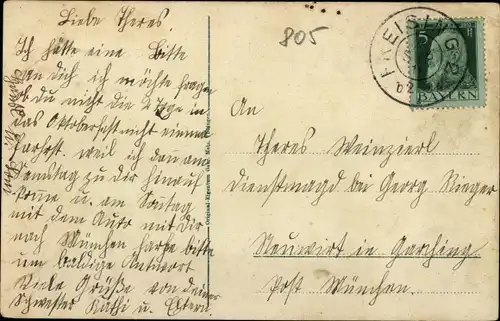 Liebe Theres.
Ich hätte eine Bitte
an dich ich möchte fragen
ob du nicht die 2 Tage in
das Oktoberfest nicht einmal
farhst. weil ich dan am
Samstag zu dir hinauf
komme u. am Sonntag
mit dem Auto mit dir
nach München farhe bitte
um baldige Antwort
Viele Grüße von deiner
Schwester Käthi u. Eltern.
805
FREISING
5
BAYERN
An
Theres Weinzierl
Dienstmagd bei Georg Rieger
Neuwirt in Garching
Post München.